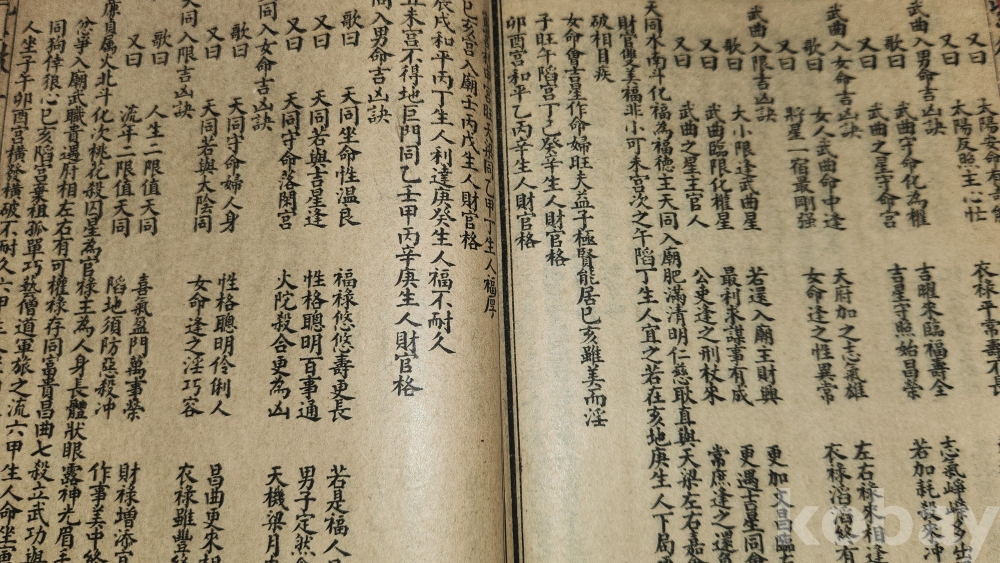 又曰
太陽反照主心
衣祿平常壽不長
武曲入男命吉凶訣
歌曰 武曲守命化為權 吉曜來臨福壽全 志氣崢嶸多出
又曰 武曲之星守命宮 吉星守照始昌榮 若加耗殺來冲
武曲入女命吉凶訣
歌曰 女人武曲命中逢 天府加之志氣雄 左右祿來相逢
又曰 將星一宿最剛強 女命逢之性異常 衣祿滔滔終有
武曲入限吉凶訣
歌曰 大小限逢武曲星 若還入廟主財興 更加文昌臨
又曰 武曲臨限化權星 最利求謀事有成 更遇吉星同會
又曰 武曲之星主官人 公吏逢之刑杖來 常庶逢之還
天同水南斗化福為福德主天同入廟肥滿清明仁慈耿直與天梁左右嘉會
財官雙美福非小可未宮次之午陷丁生人宜之若在亥地庚生人下局
破相目疾
女命會吉星作命婦旺夫益子極賢能居巳亥雖美而淫
子旺午陷宮丁己癸辛生人財官格
卯酉宮和平乙丙辛生人財官格
乙甲丁生人福厚
巳亥宮入廟壬丙戊生人財官格
辰戌和平丙丁生人利達庚癸生人福不耐久
丑未宮不得地巨門同乙壬甲丙辛庚生人財官格
入男命吉凶訣
歌曰 天同坐命性溫良 福祿悠悠壽更長 若是福人
又曰 天同若與吉星逢 性格聰明百事通 男子定然
又曰 天同守命落閑宮 火陀殺合更為凶 天機梁月
同入女命吉凶訣
歌曰 天同守命婦人身 性格聰明伶俐人 昌曲更來相
又曰 天同若與大陰同 女命逢之淫巧容 衣祿雖豐
天同入限吉凶訣
歌曰 人生二限值天同 喜氣盈門萬事榮 財祿增添宜
又曰 流年二限值天同 陷地須防惡殺冲 作事美中終
貞屬火北斗化次桃花殺囚星為官祿主為人身長體狀眼露神光眉
忿爭入廟武職貴遇府相左右有可權祿存同富貴昌曲七殺立武功
同狗倖狼心巳亥陷宮棄祖孤單巧藝僧道軍旅之流六甲生人命坐
人生子午卯酉宮橫發橫破不耐久六甲
kobay